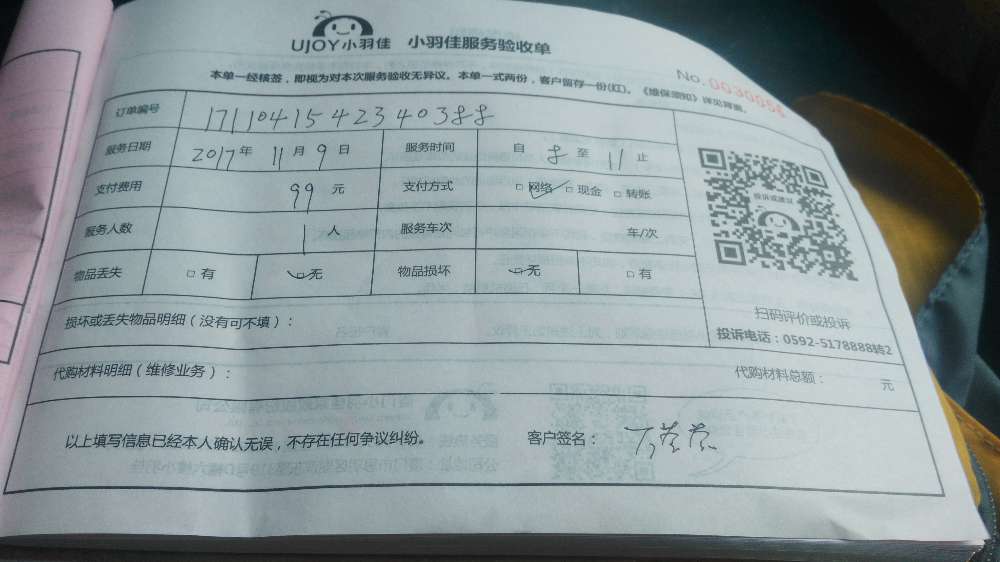 UJOY小羽佳 小羽佳服务验收单
本单一经核签，即视为对本次服务验收无异议。本单一式两份，客户留存一份(红)。《维保须知》详见背面。
No.0030056
订单编号 1711041542340388
服务日期 2017年 11月 9日 服务时间 自 8 至 11 止
支付费用 99 元 支付方式 □网络 □现金 □转账
服务人数 1人 服务车次 车/次
物品丢失 □有 □无 物品损坏 □无 □有
投诉或建议
扫码评价或投诉
投诉电话：0592-5178888转2
损坏或丢失物品明细（没有可不填）：
代购材料明细（维修业务）： 代购材料总额： 元
以上填写信息已经本人确认无误，不存在任何争议纠纷。 客户签名：